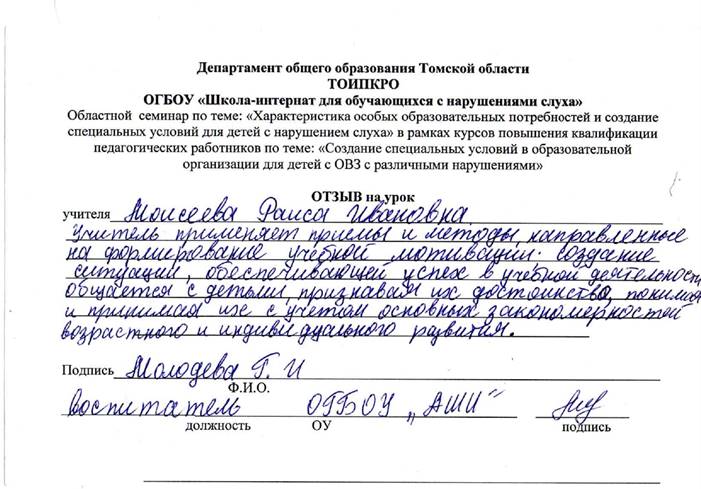 Департамент общего образования Томской области
ТОИПКРО
ОГБОУ «Школа-интернат для обучающихся с нарушениями слуха»
Областной семинар по теме: «Характеристика особых образовательных потребностей и создание
специальных условий для детей с нарушением слуха» в рамках курсов повышения квалификации
педагогических работников по теме: «Создание специальных условий в образовательной
организации для детей с ОВЗ с различными нарушениями»
ОТЗЫВ на урок
учителя Моисеева Раиса Ивановна
Учитель применяет приемы и методы, направленные
на формирование учебной мотивации: создание
ситуации, обеспечивающей успех в учебной деятельност
общается с детьми, признавая их достоинства, понимая
и принимая их с учетом основных закономерностей
возрастного и индивидуального развития.
Подпись Молодева Г. И
Ф.И.О.
Воспитатель ОГБОУ „АШИ"
должность ОУ подпись